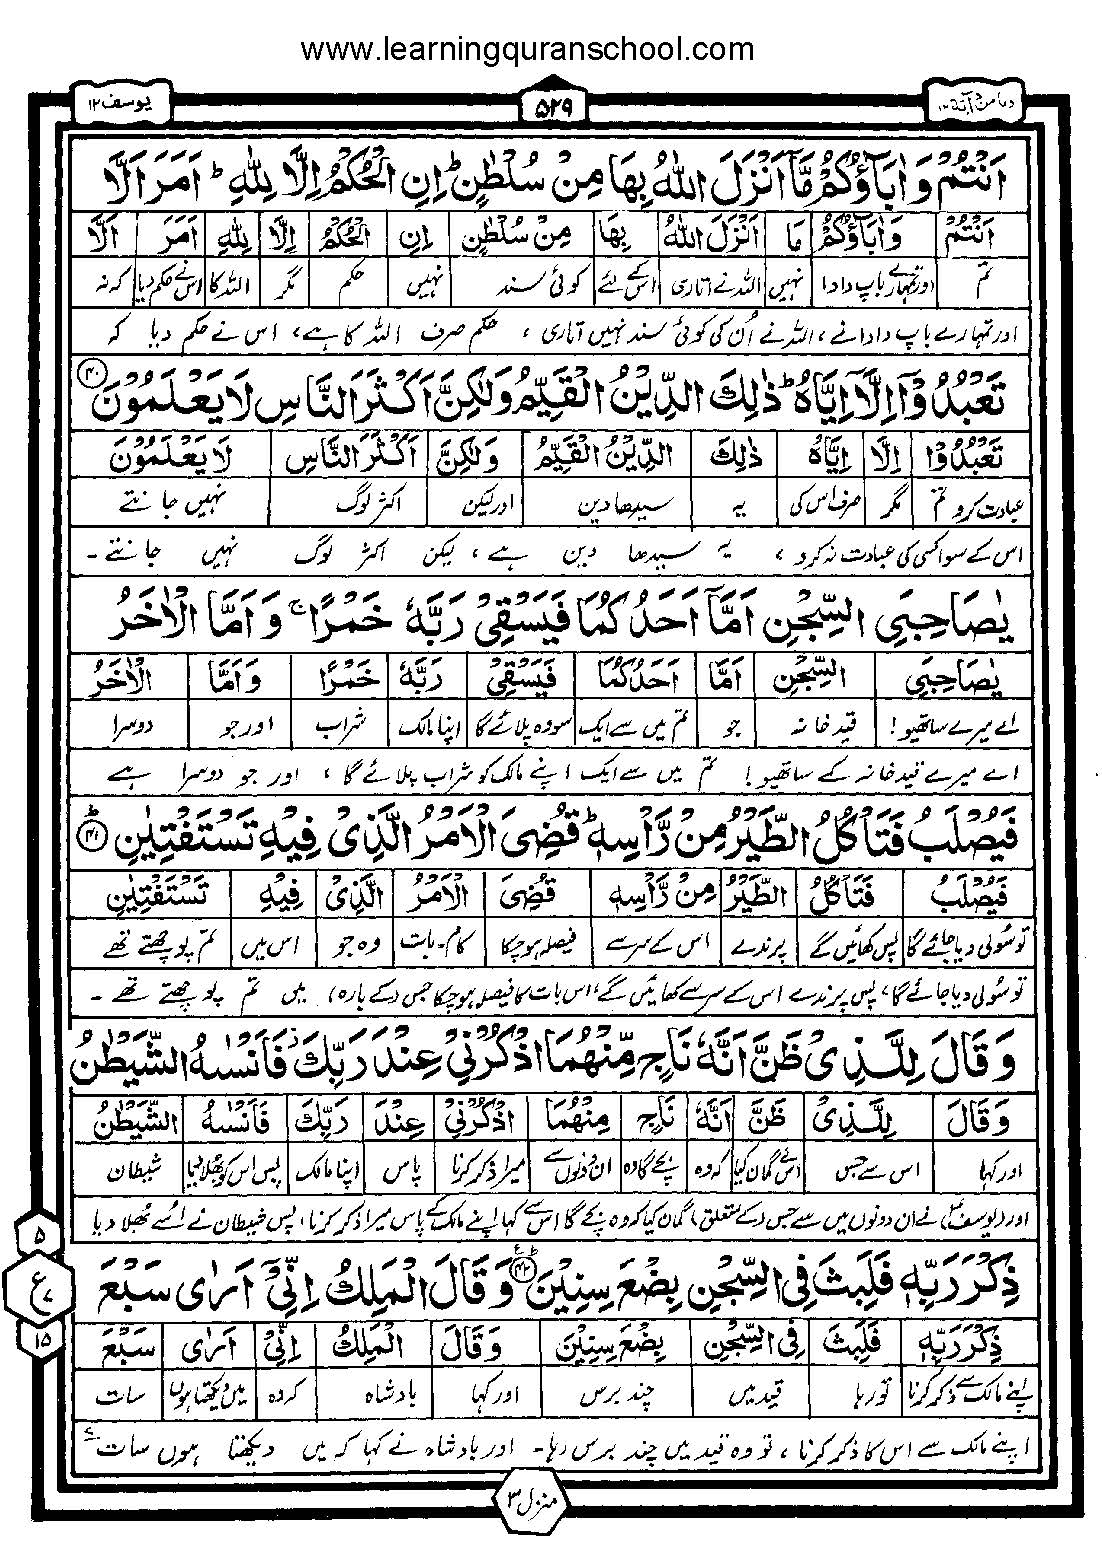 www.learningquranschool.com
وما من دآبة ١٢
۵۲۹
یوسف ۱۲
اَنْتُمْ وَاٰبَآؤُكُمْ مَّاۤ اَنْزَلَ اللّٰهُ بِهَا مِنْ سُلْطٰنٍ ؕ اِنِ الْحُكْمُ اِلَّا لِلّٰهِ ؕ اَمَرَ اَلَّا
اَنْتُمْ وَاٰبَآؤُكُمْ مَا اَنْزَلَ اللّٰهُ بِهَا مِنْ سُلْطٰنٍ اِنِ الْحُكْمُ اِلَّا لِلّٰهِ اَمَرَ اَلَّا
تم اور تمہارے باپ دادا نہیں اللہ نے اتاری اس کے لئے کوئی سند نہیں حکم مگر اللہ کا اس نے حکم دیا کہ نہ
اور تمہارے باپ دادا نے، اللہ نے اُن کی کوئی سند نہیں اتاری، حکم صرف اللہ کا ہے، اس نے حکم دیا کہ
تَعْبُدُوْۤا اِلَّاۤ اِیَّاهُ ؕ ذٰلِكَ الدِّیْنُ الْقَیِّمُ وَلٰكِنَّ اَكْثَرَ النَّاسِ لَا یَعْلَمُوْنَ ۴۰
تَعْبُدُوْا اِلَّا اِیَّاهُ ذٰلِكَ الدِّیْنُ الْقَیِّمُ وَلٰكِنَّ اَكْثَرَ النَّاسِ لَا یَعْلَمُوْنَ
عبادت کرو تم مگر صرف اس کی یہ سیدھا دین اور لیکن اکثر لوگ نہیں جانتے
اس کے سوا کسی کی عبادت نہ کرو، یہ سیدھا دین ہے، لیکن اکثر لوگ نہیں جانتے ۔
یٰصَاحِبَیِ السِّجْنِ اَمَّاۤ اَحَدُكُمَا فَیَسْقِیْ رَبَّهٗ خَمْرًا ۚ وَاَمَّا الْاٰخَرُ
یٰصَاحِبَیِ السِّجْنِ اَمَّا اَحَدُكُمَا فَیَسْقِیْ رَبَّهٗ خَمْرًا وَاَمَّا الْاٰخَرُ
اے میرے ساتھیو! قید خانہ جو تم میں سے ایک سو وہ پلائے گا اپنا مالک شراب اور جو دوسرا
اے میرے قید خانہ کے ساتھیو! تم میں سے ایک اپنے مالک کو شراب پلائے گا، اور جو دوسرا ہے
فَیُصْلَبُ فَتَاْكُلُ الطَّیْرُ مِنْ رَّاْسِهٖ ؕ قُضِیَ الْاَمْرُ الَّذِیْ فِیْهِ تَسْتَفْتِیٰنِ ؕ ۴۱
فَیُصْلَبُ فَتَاْكُلُ الطَّیْرُ مِنْ رَّاْسِهٖ قُضِیَ الْاَمْرُ الَّذِیْ فِیْهِ تَسْتَفْتِیٰنِ
تو سُولی دیا جائے گا پس کھائیں گے پرندے اس کے سر سے فیصلہ ہو چکا کام۔بات وہ جو اس میں تم پوچھتے تھے
تو سُولی دیا جائے گا، پس پرندے اس کے سر سے کھائیں گے، اس بات کا فیصلہ ہو چکا جس (کے بارہ) میں تم پوچھتے تھے ۔
وَقَالَ لِلَّذِیْ ظَنَّ اَنَّهٗ نَاجٍ مِّنْهُمَا اذْكُرْنِیْ عِنْدَ رَبِّكَ ؗ فَاَنْسٰىهُ الشَّیْطٰنُ
وَقَالَ لِلَّذِیْ ظَنَّ اَنَّهٗ نَاجٍ مِنْهُمَا اذْكُرْنِیْ عِنْدَ رَبِّكَ فَاَنْسٰىهُ الشَّیْطٰنُ
اور کہا اس سے جس اس نے گمان کیا کہ وہ بچے گا وہ ان دونوں سے میرا ذکر کرنا پاس اپنا مالک پس اس کو بھلا دیا شیطان
اور (یوسفؑ) نے ان دونوں میں سے جس (کے متعلق) گمان کیا کہ وہ بچے گا اس سے کہا اپنے مالک کے پاس میرا ذکر کرنا، پس شیطان نے اُسے بُھلا دیا
ذِكْرَ رَبِّهٖ فَلَبِثَ فِی السِّجْنِ بِضْعَ سِنِیْنَ ۴۲ وَقَالَ الْمَلِكُ اِنِّیْۤ اَرٰى سَبْعَ
ذِكْرَ رَبِّهٖ فَلَبِثَ فِی السِّجْنِ بِضْعَ سِنِیْنَ وَقَالَ الْمَلِكُ اِنِّیْ اَرٰى سَبْعَ
اپنے مالک سے ذکر کرنا تو رہا قید میں چند برس اور کہا بادشاہ کہ وہ میں دیکھتا ہوں سات
اپنے مالک سے اس کا ذکر کرنا، تو وہ قید میں چند برس رہا۔ اور بادشاہ نے کہا کہ میں دیکھتا ہوں سات
۵
ع ۷
۱۵
منزل ۳